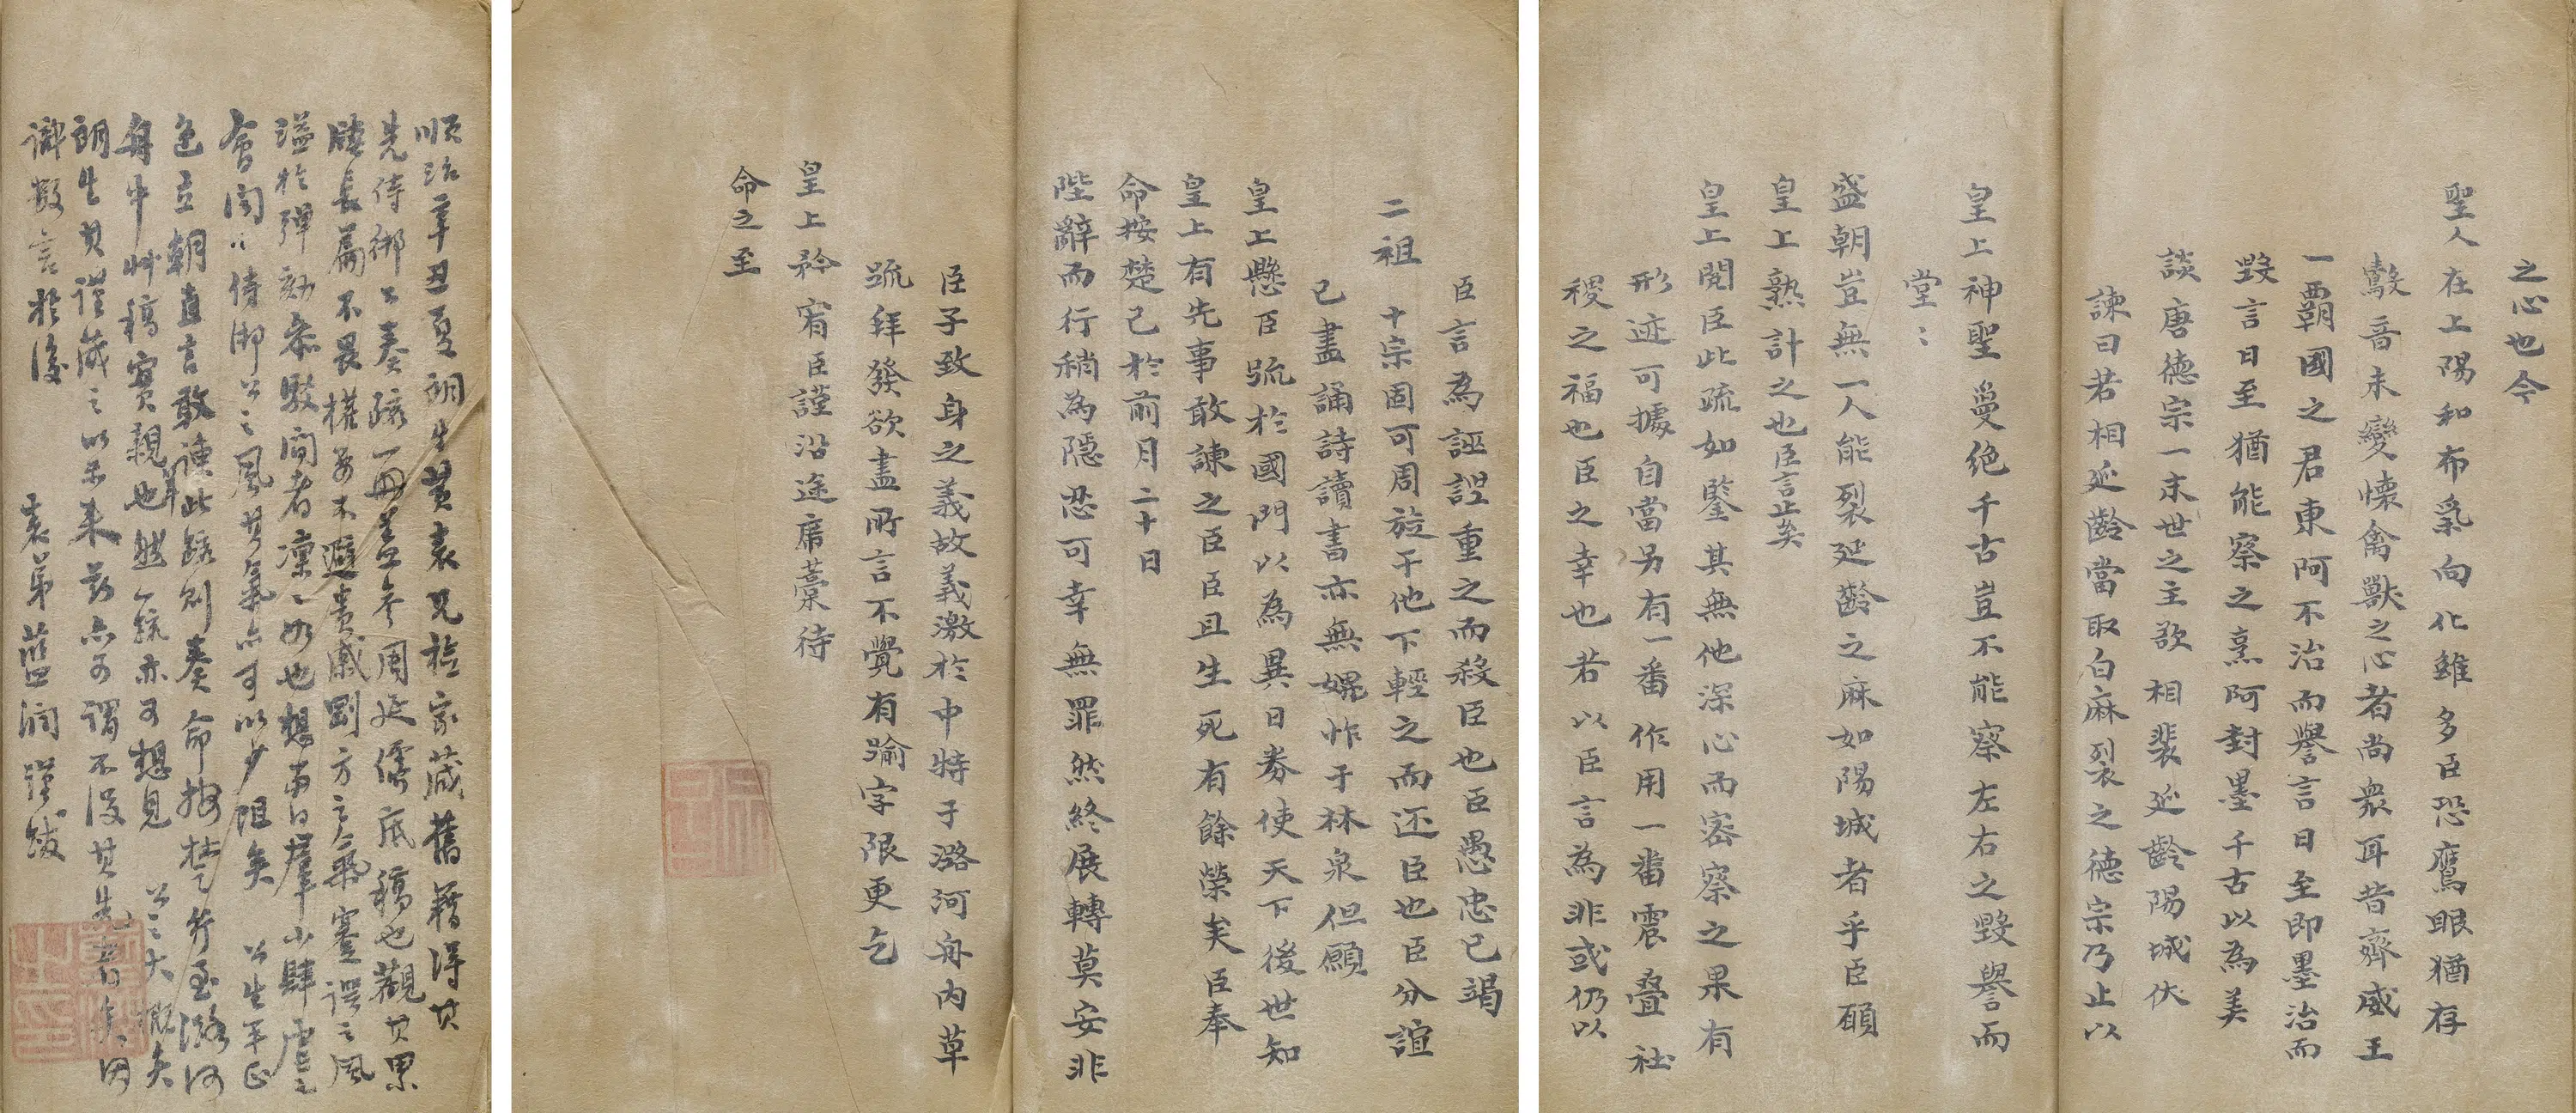 之心也今
聖人在上陽和布氣向化雖多臣恐鷹眼猶存
鷇音未變懷禽獸之心者尚衆耳昔齊威王
一霸國之君東阿不治而譽言日至即墨治而
毀言日至猶能察之烹阿封墨千古以為美
談唐德宗一末世之主欲相裴延齡陽城伏
諫曰若相延齡當取白麻裂之德宗乃止以
皇上神聖夐絕千古豈不能察左右之毀譽而
堂:
盛朝豈無一人能裂延齡之麻如陽城者乎臣願
皇上熟計之也臣言止矣
皇上閱臣此疏如鑒其無他深心而密察之果有
形迹可據自當另有一番作用一番震疊社
稷之福也臣之幸也若以臣言為非或仍以
臣言為誣謾重之而殺臣也臣愚忠已竭
二祖十宗固可周旋于他下輕之而還臣也臣分誼
已盡誦詩讀書亦無媿怍于林泉但願
皇上懸臣疏於國門以為異日券使天下後世知
皇上有先事敢諫之臣臣且生死有餘榮矣臣奉
命按楚已於前月二十日
陛辭而行稍為隱忍可幸無罪然終展轉莫安非
臣子致身之義故義激於中特于潞河舟内草
疏拜發欲盡所言不覺有踰字限更乞
皇上矜宥臣謹沿途席藁待
命之至
順治辛丑夏朗生黄表兄檢家藏舊籍得其
先侍御公奏疏一冊蓋岑周延儒底稿也觀其累
牘長篇不畏權要不避貴戚剛方之氣謇諤之風
溢於彈劾条駁間者凜凜如也想南日羣小肆虐之
會聞侍御公之風其氣亦可以少阻矣公生平正
色立朝直言敢諫此疏則奏命按楚行至潞河
舟中艸稿實親也然一疏亦可想見公之大概矣
朗生其謹藏之以示来茲亦可謂不没其先者矣因
識數言於後
表弟藍潤謹跋